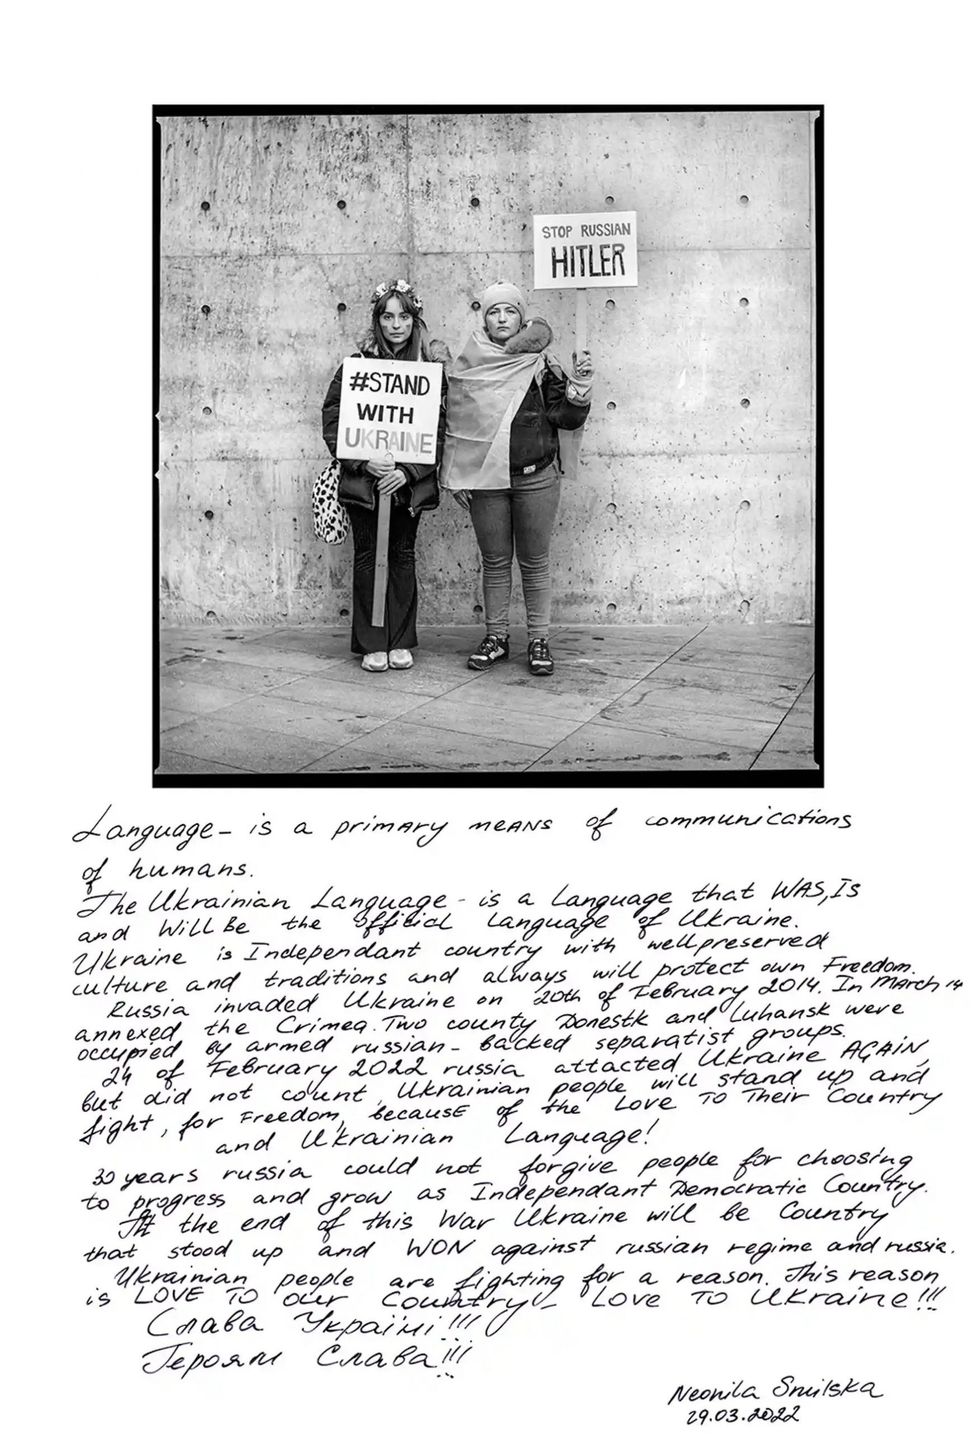 STOP RUSSIAN
HITLER
#STAND
WITH
UKRAINE
Language - is a primary means of communications
of humans.
The Ukrainian Language - is a language that WAS, Is
and Will Be the Official language of Ukraine.
Ukraine is Independant country with wellpreserved
culture and traditions and always will protect own Freedom.
Russia invaded Ukraine on 20th of February 2014. In March 14
annexed the Crimea. Two county Donestk and Luhansk were
occupied by armed russian - backed separatist groups.
24 of February 2022 russia attacted Ukraine AGAiN,
but did not count Ukrainian people will stand up and
fight, for Freedom, because of the Love To Their Country
and Ukrainian Language!
30 years russia could not forgive people for choosing
to progress and grow as Independant Democratic Country.
At the end of this War Ukraine will be Country
that stood up and WON against russian regime and russia.
Ukrainian people are fighting for a reason. This reason
is LOVE TO our Country - LOVE TO Ukraine!!!
Слава Україні!!!
Героям Слава!!!
Neonila Smilska
29.03.2022